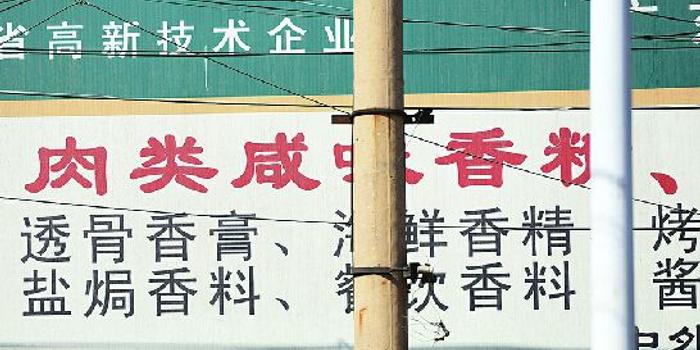 省高新技术企业
肉类咸味香精、
透骨香膏、海鲜香精 烤
盐焗香料、餐饮香料 酱